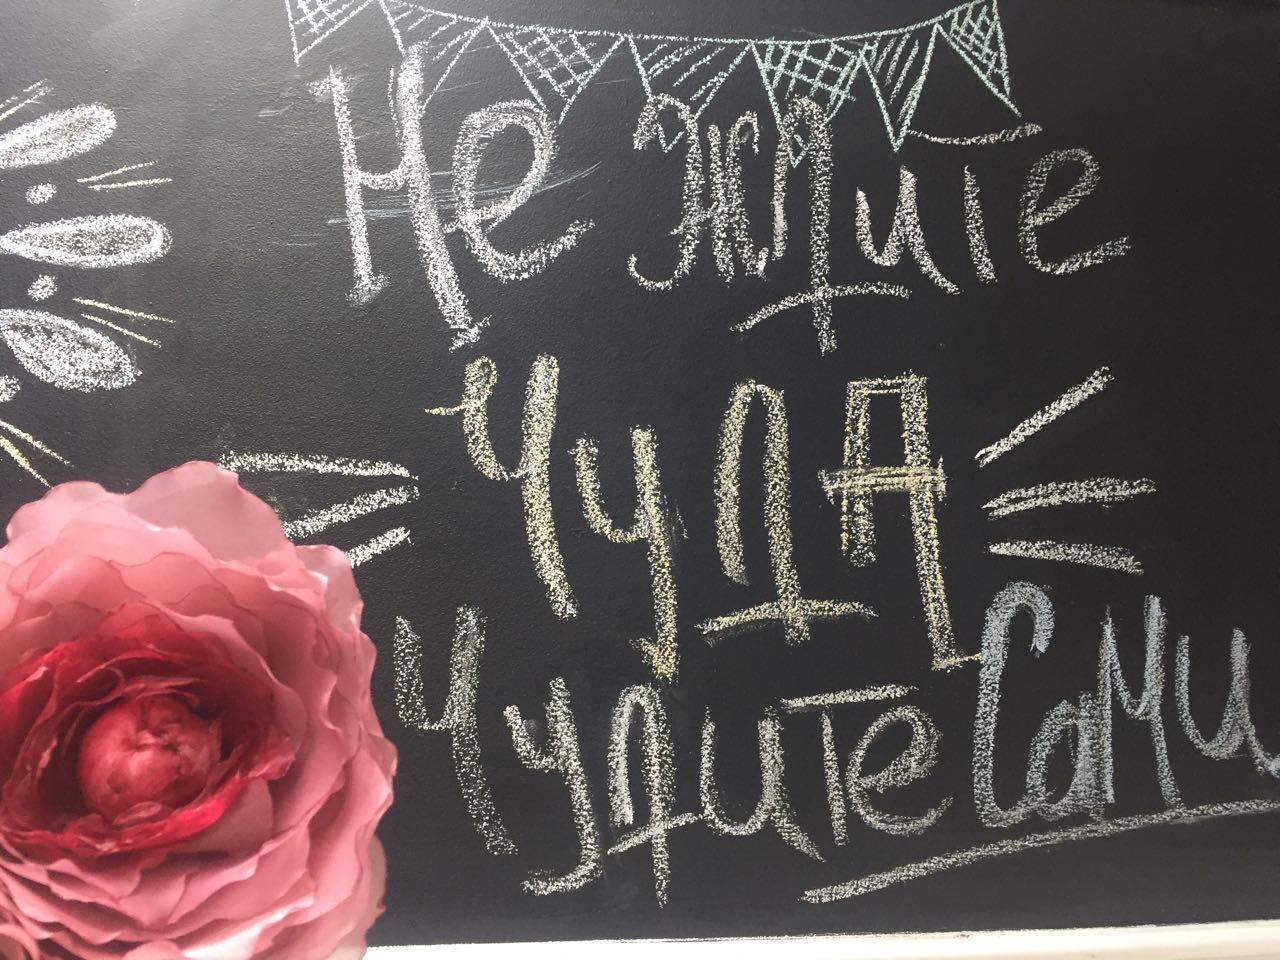 Не ждите
ЧУДА
Чудите Сами